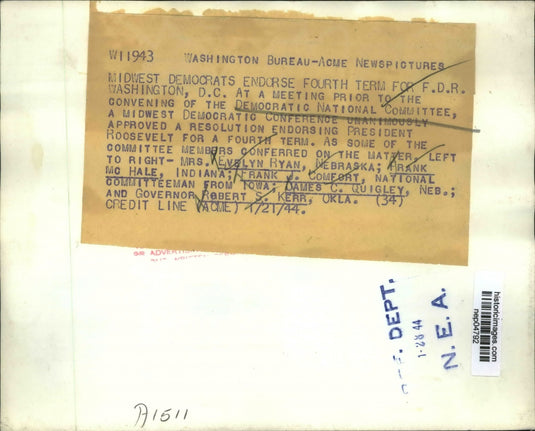 W11943 WASHINGTON BUREAU-ACME NEWSPICTURES
MIDWEST DEMOCRATS ENDORSE FOURTH TERM FOR F.D.R.
WASHINGTON, D.C. AT A MEETING PRIOR TO THE
CONVENING OF THE DEMOCRATIC NATIONAL COMMITTEE,
A MIDWEST DEMOCRATIC CONFERENCE UNANIMOUSLY
APPROVED A RESOLUTION ENDORSING PRESIDENT
ROOSEVELT FOR A FOURTH TERM. AS SOME OF THE
COMMITTEE MEMBERS CONFERRED ON THE MATTER, LEFT
TO RIGHT- MRS. EVELYN RYAN, NEBRASKA; FRANK
MC HALE, INDIANA; FRANK J. COMFORT, NATIONAL
COMMITTEEMAN FROM IOWA; JAMES C. QUIGLEY, NEB.;
AND GOVERNOR ROBERT S. KERR, OKLA. (34)
CREDIT LINE (ACME) 1/21/44.
OR ADVERTI
DEPT.
1-28 44
N. E. A.
historicimages.com
nep04792
A1511